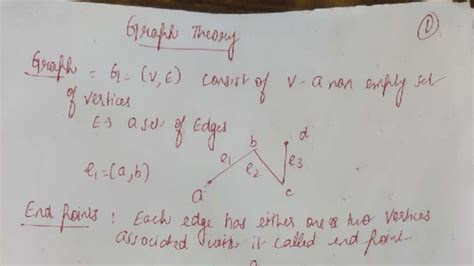 Graph Theory
①
Graph = G = (V, E) consist of V - a non empty set
of vertices
E → a set of Edges
b
d
e₁
e₂
e₃
e₁ = (a, b)
a
c
End Points : Each edge has either one or two vertices
associated with it called end point